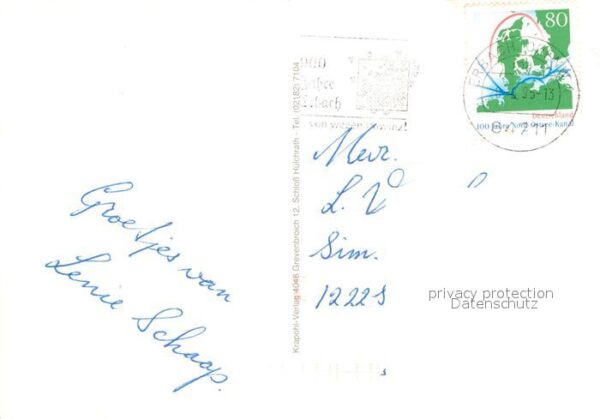 Groetjes van
Lenie Schaap.
900
Jahre
Krapohl-Verlag 4048 Grevenbroich 12, Schloß Hülchrath - Tel. (02182) 7104
80
Deutschland
100 Jahre Nord-Ostsee-Kanal
Mevr.
L. V
Sim.
1222 S
privacy protection
Datenschutz